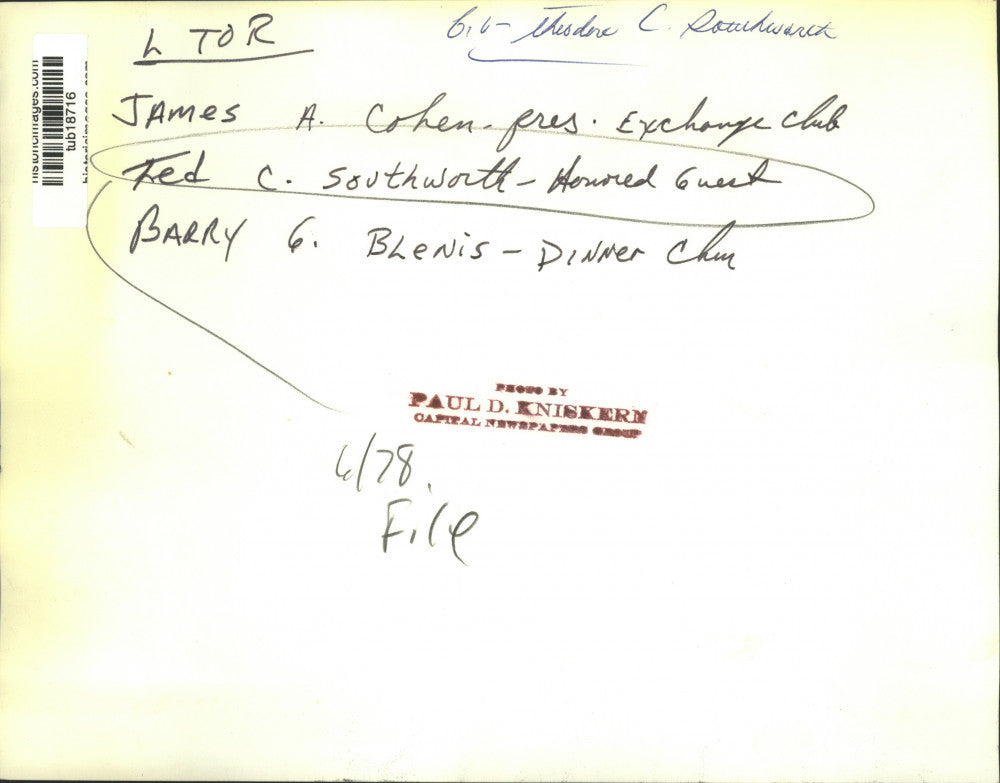 L TOR
Theodore C. Southworth
JAMES A. Cohen - pres. Exchange Club
Ted C. Southworth - Honored Guest
BARRY G. BLENIS - DINNER Chm
PHOTO BY
PAUL D. KNISKERN
CAPITAL NEWSPAPERS GROUP
6/78
File
historicimages.com
tub18716
historicimages.com